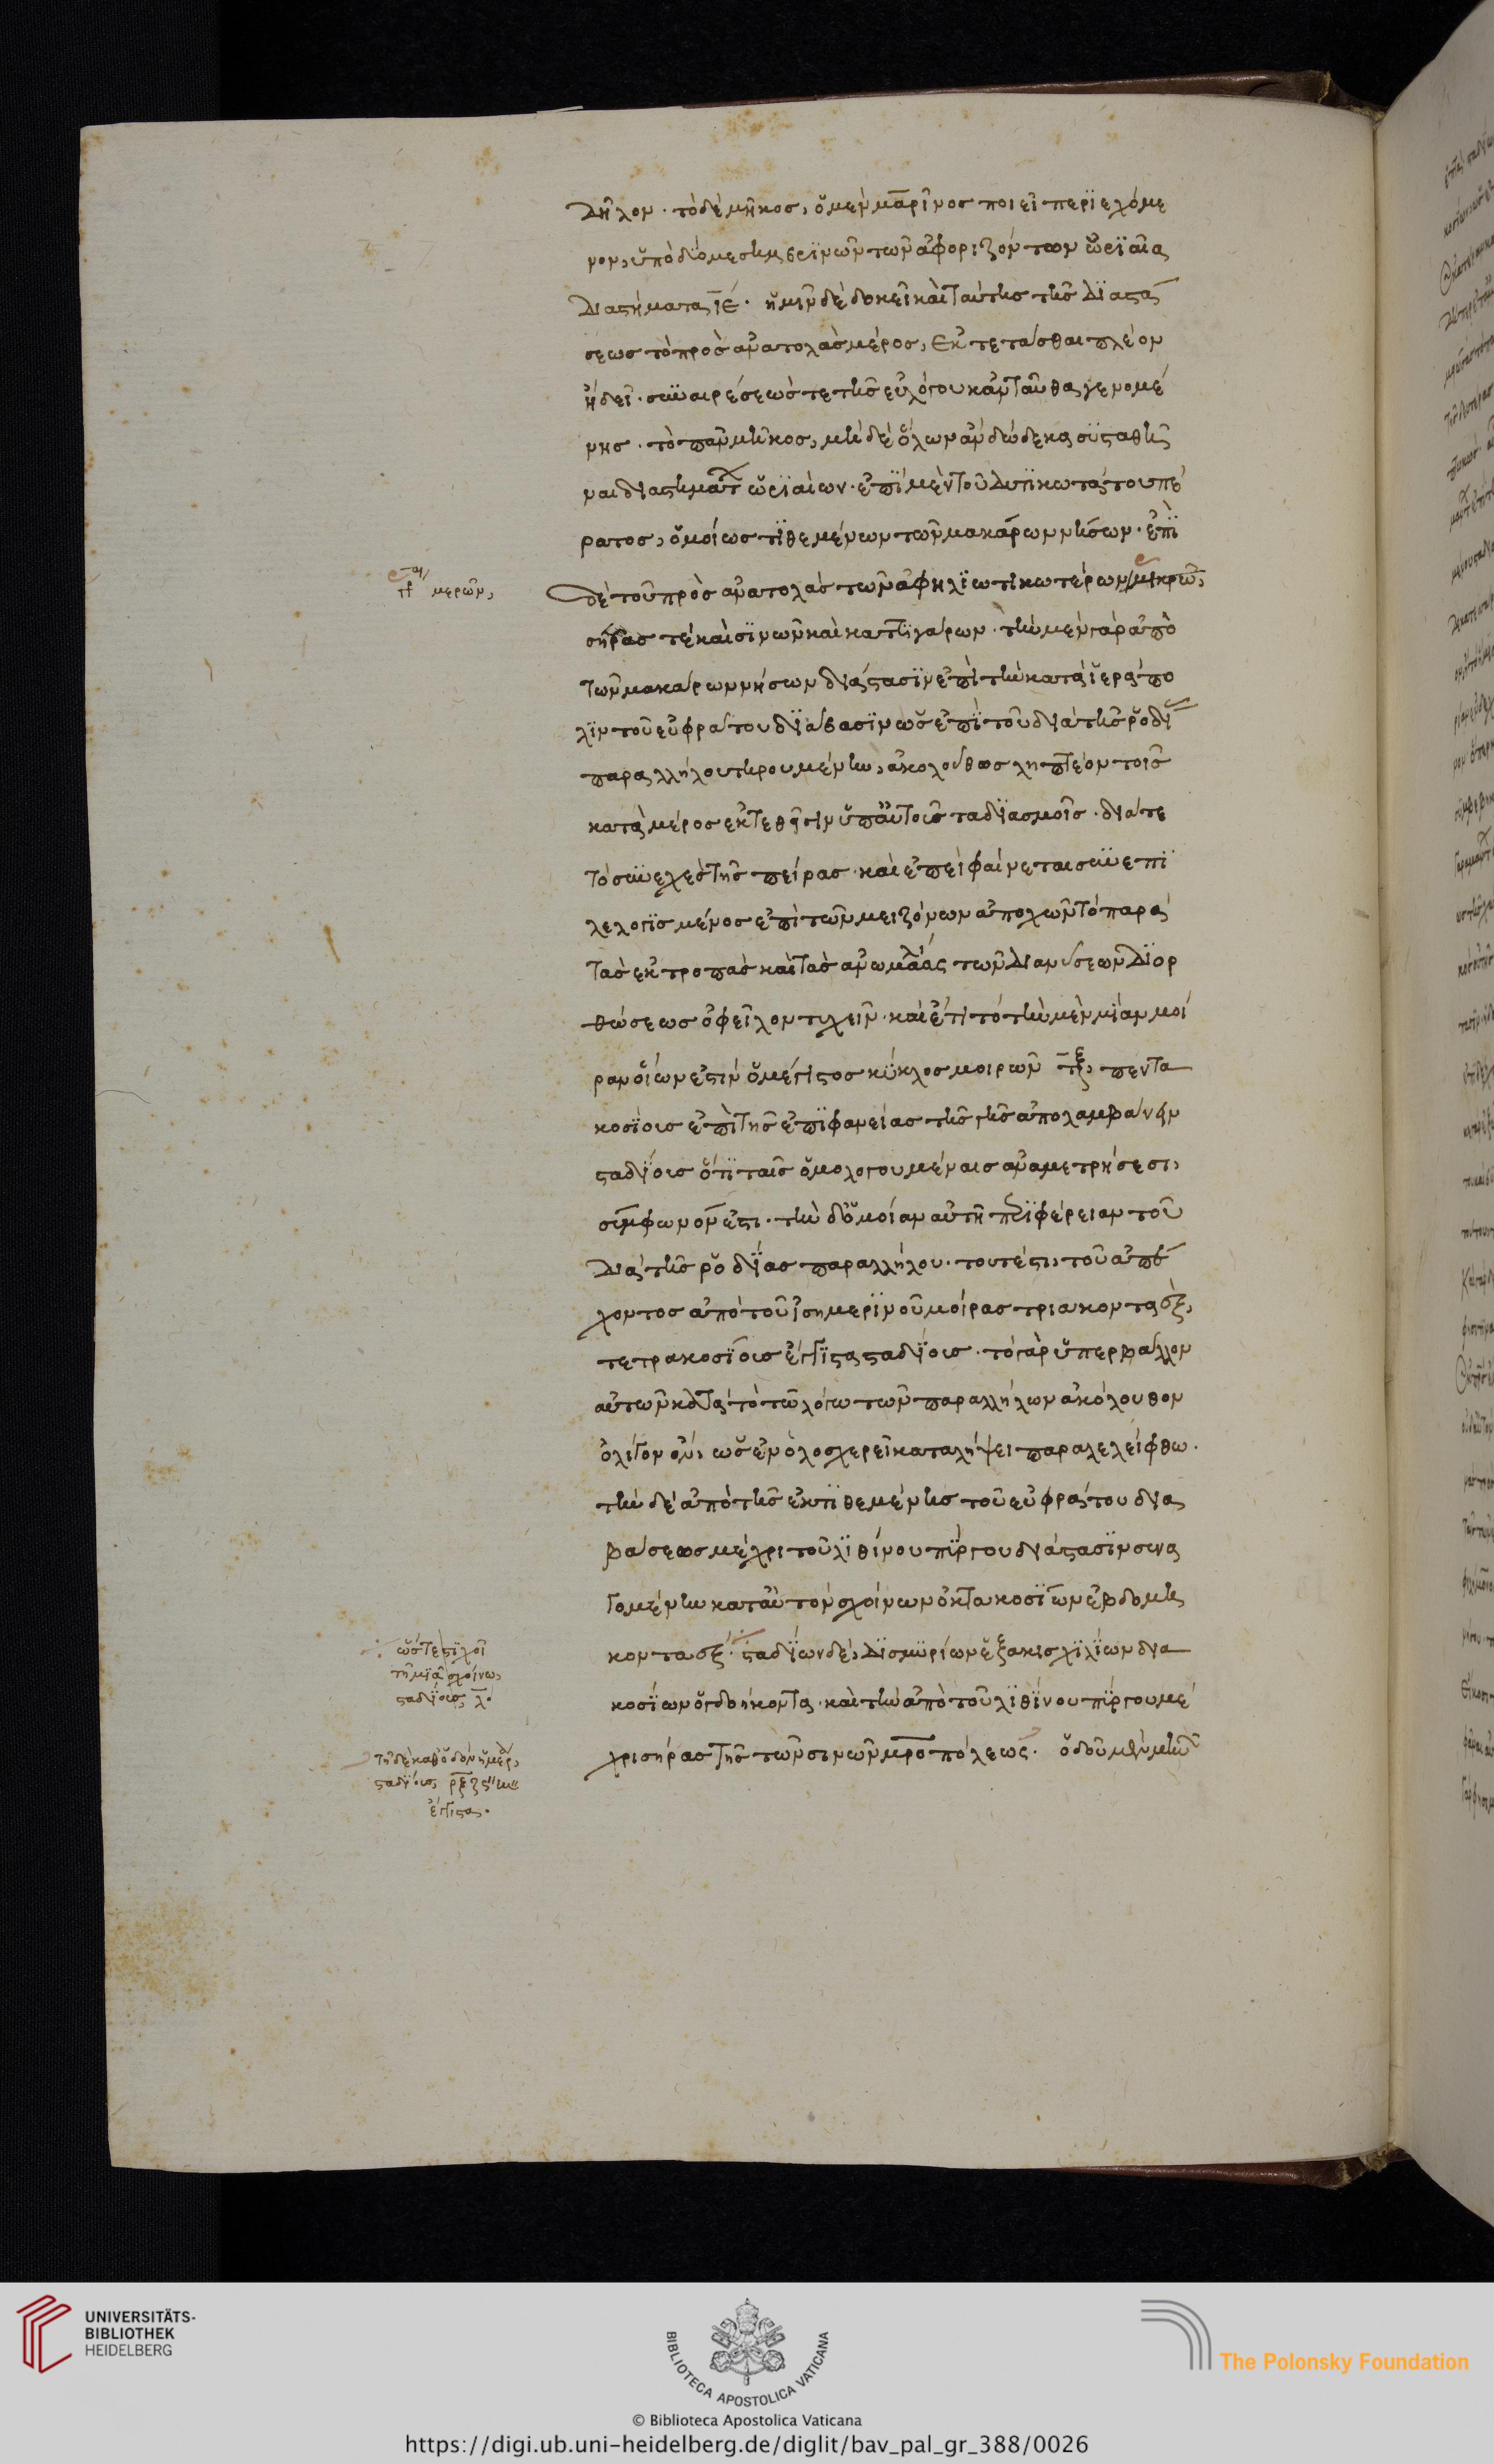 δῆλον. τὸ δὲ μῆκος, ὁ μὲν μαρῖνος ποιεῖ περιεχόμε
νον, ὑπὸ δύο μεσημβρινῶν τῶν ἀφοριζόντων ὡριαῖα
διαστήματα ιε. ἡμῖν δὲ δοκεῖ καὶ ταύτης τῆς διαστά
σεως τὸ πρὸς ἀνατολὰς μέρος, ἐκτετάσθαι πλέον
ἢ δεῖ. συναιρέσεώς τε τῆς εὐλόγου κἀνταῦθα γενομέ
νης. τὸ πᾶν μῆκος, μὴ δὲ ὅλων ἂν δώδεκα συσταθῆ
ναι διαστημάτ ὡριαίων. ἐπὶ μὲν τοῦ δυτικωτάτου πέ
ρατος, ὁμοίως τιθεμένων τῶν μακάρων νήσων. ἐπὶ
δὲ τοῦ πρὸς ἀνατολὰς τῶν ἀφηλιωτικωτέρων μικρῶν,
σήρας τὲ καὶ σινῶν καὶ καττιγάρων. τὴν μὲν γὰρ ἀπὸ
τῶν μακάρων νήσων διάστασιν ἐπὶ τὴν κατὰ ἱερὰ πό
λιν τοῦ εὐφράτου διάβασιν ὡς ἐπὶ τοῦ διὰ τῆς ῥοδί
παραλλήλου τηρουμένην, ἀκολούθως ληπτέον τοῖς
κατὰ μέρος ἐκτεθεῖσιν ὑπ αὐτοῖς σταδιασμοῖς. διά τε
τὸ συνεχὲς τῆς πείρας. καὶ ἐπεὶ φαίνεται συνεπι
λελογισμένος ἐπὶ τῶν μειζόνων ἀποχῶν τὸ παρὰ
τὰς ἐκτροπὰς καὶ τὰς ἀνωμαλίας τῶν διανύσεων διορ
θώσεως ὀφεῖλον τυχεῖν. καὶ ἔτι τὸ τὴν μὲν μίαν μοί
ραν οἵων ἐστὶν ὁ μέγιστος κύκλος μοιρῶν τξ, πεντα
κοσίους ἐπὶ τῆς ἐπιφανείας τῆς γῆς ἀπολαμβάνειν
σταδίους ὅτι ταῖς ὁμολογουμέναις ἀναμετρήσεσι,
σύμφωνόν ἐστι. τὴν δ ὁμοίαν αὐτῇ περιφέρειαν τοῦ
διὰ τῆς ῥοδίας παραλλήλου. τουτέστι, τοῦ ἀπέ
χοντος ἀπὸ τοῦ ἰσημερινοῦ μοίρας τριακονταὲξ,
τετρακοσίους ἔγγιστα σταδίους. τὸ γὰρ ὑπερβάλλον
αὐτῶν κατὰ τὸ τῷ λόγω τῶν παραλλήλων ἀκόλουθον
ὀλίγον ὂν, ὡς ἐν ὁλοσχερεῖ καταλήψει παραλελείφθω.
τὴν δὲ ἀπὸ τῆς ἐκτιθεμένης τοῦ εὐφράτου δια
βάσεως μέχρι τοῦ λιθίνου πύργου διάστασιν συνα
γομένην κατ αὐτὸν σχοίνων ὀκτακοσίων ἑβδομή
κονταὲξ. σταδίων δὲ, δισμυρίων ἑξακισχιλίων δια
κοσίων ὀγδοήκοντα. καὶ τὴν ἀπὸ τοῦ λιθίνου πύργου μέ
χρι σήρας τῆς τῶν σινῶν μητροπόλεως. ὁδοῦ μὲν μηνῶν
μερῶν,
ὥστε
τῇ μιᾷ σχοίνω,
σταδίους λ
τῇ δὲ καθ ὁδὸν ἡμέρ,
σταδίους
ἔγγιστα.
UNIVERSITÄTS-
BIBLIOTHEK
HEIDELBERG
BIBLIOTECA APOSTOLICA VATICANA
The Polonsky Foundation
© Biblioteca Apostolica Vaticana
https://digi.ub.uni-heidelberg.de/diglit/bav_pal_gr_388/0026